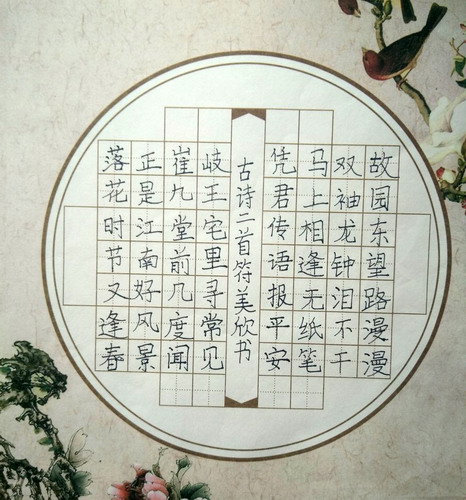 故园东望路漫漫
双袖龙钟泪不干
马上相逢无纸笔
凭君传语报平安
古诗二首符美欣书
岐王宅里寻常见
崔九堂前几度闻
正是江南好风景
落花时节又逢春